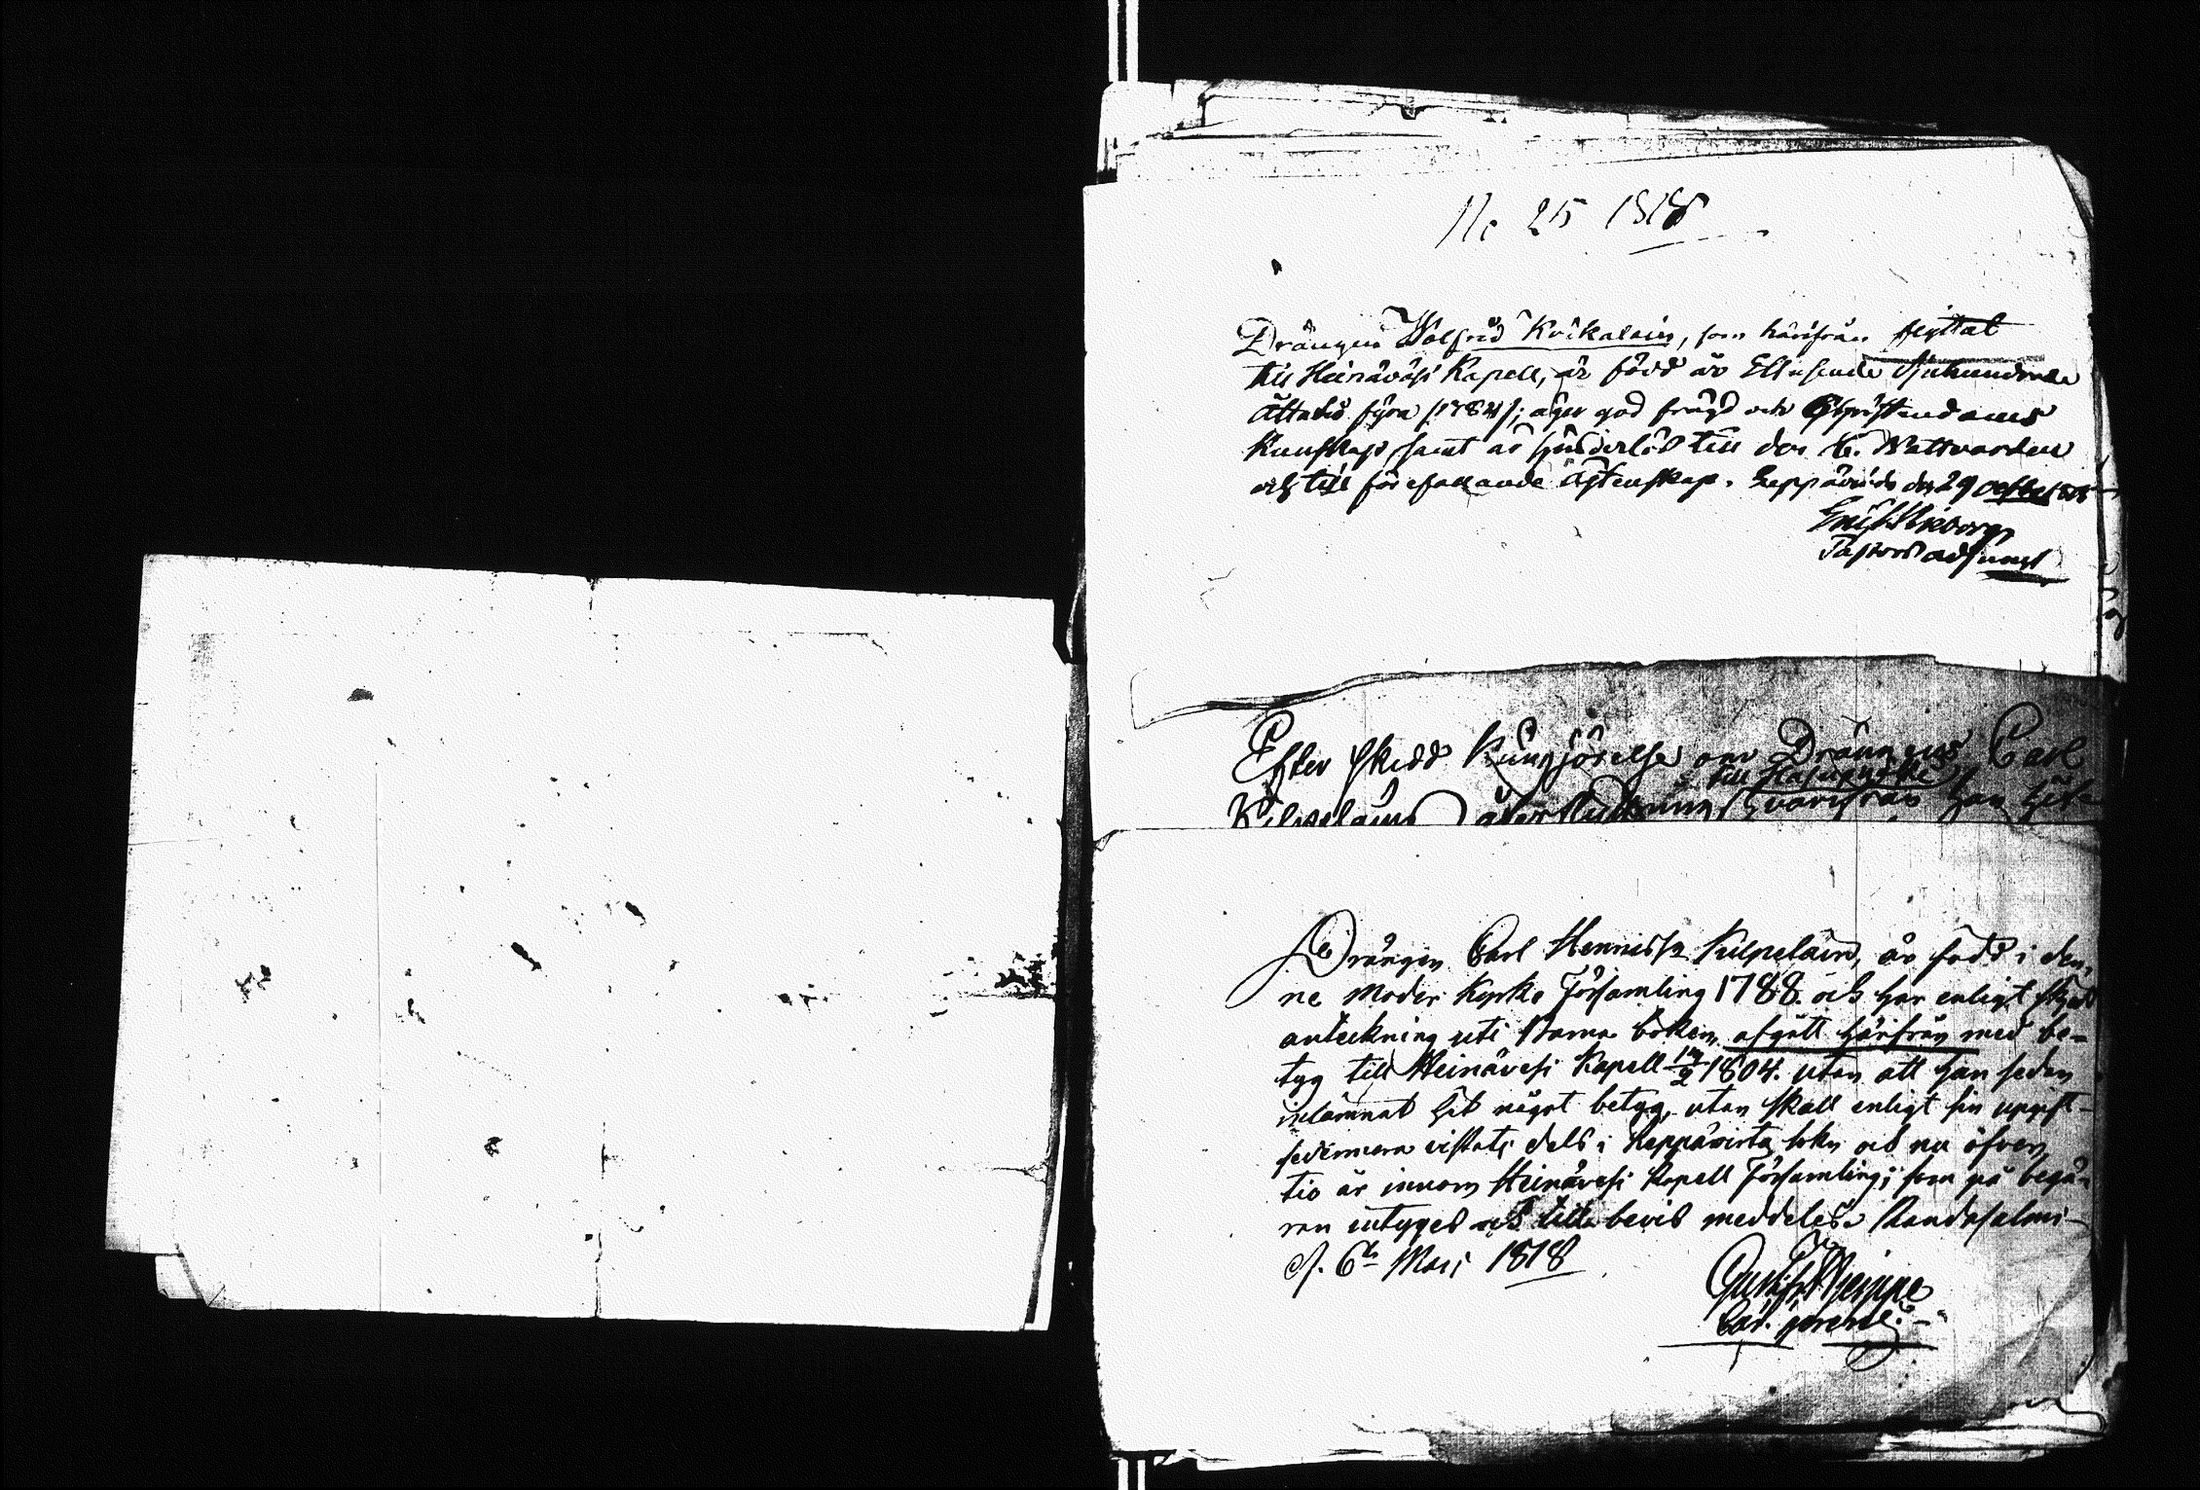 No 25 1818
Drängen Wolfred Kåikalain, som härifrån flyttat
till Heinävesi Kapell, är född år Ettusende Sjuhundrade
Åttatio fyra (1784); äger god fregd och Christendoms
Kunskap samt är hinderlös till den H. Nattvarden
och till förefallande Ägtenskap. Leppävirda den 29 octber 1818
Pastors adjunct
Efter skedd Kungjörelse om Drängens Carl
till Hasumäki
Kilpeläins återflyttning hvarifrån han hit
Drängen Carl Henricss. Kilpeläin, är född i den,
ne Moder Kyrko Församling 1788. och har enligt skjedd
anteckning uti Barna boken afgått härifrån med be-
tyg till Heinävesi Kapell 1804. utan att han sedan
inlämnat hit något betyg, utan skall enligt sin uppgift
sedermera vistats dels i Leppävirta sokn och nu öfver
tio år innom Heinävesi Kapell Församling; som på begä-
ran intygas och till bevis meddelas. Randasalmi
d. 6te Maij 1818